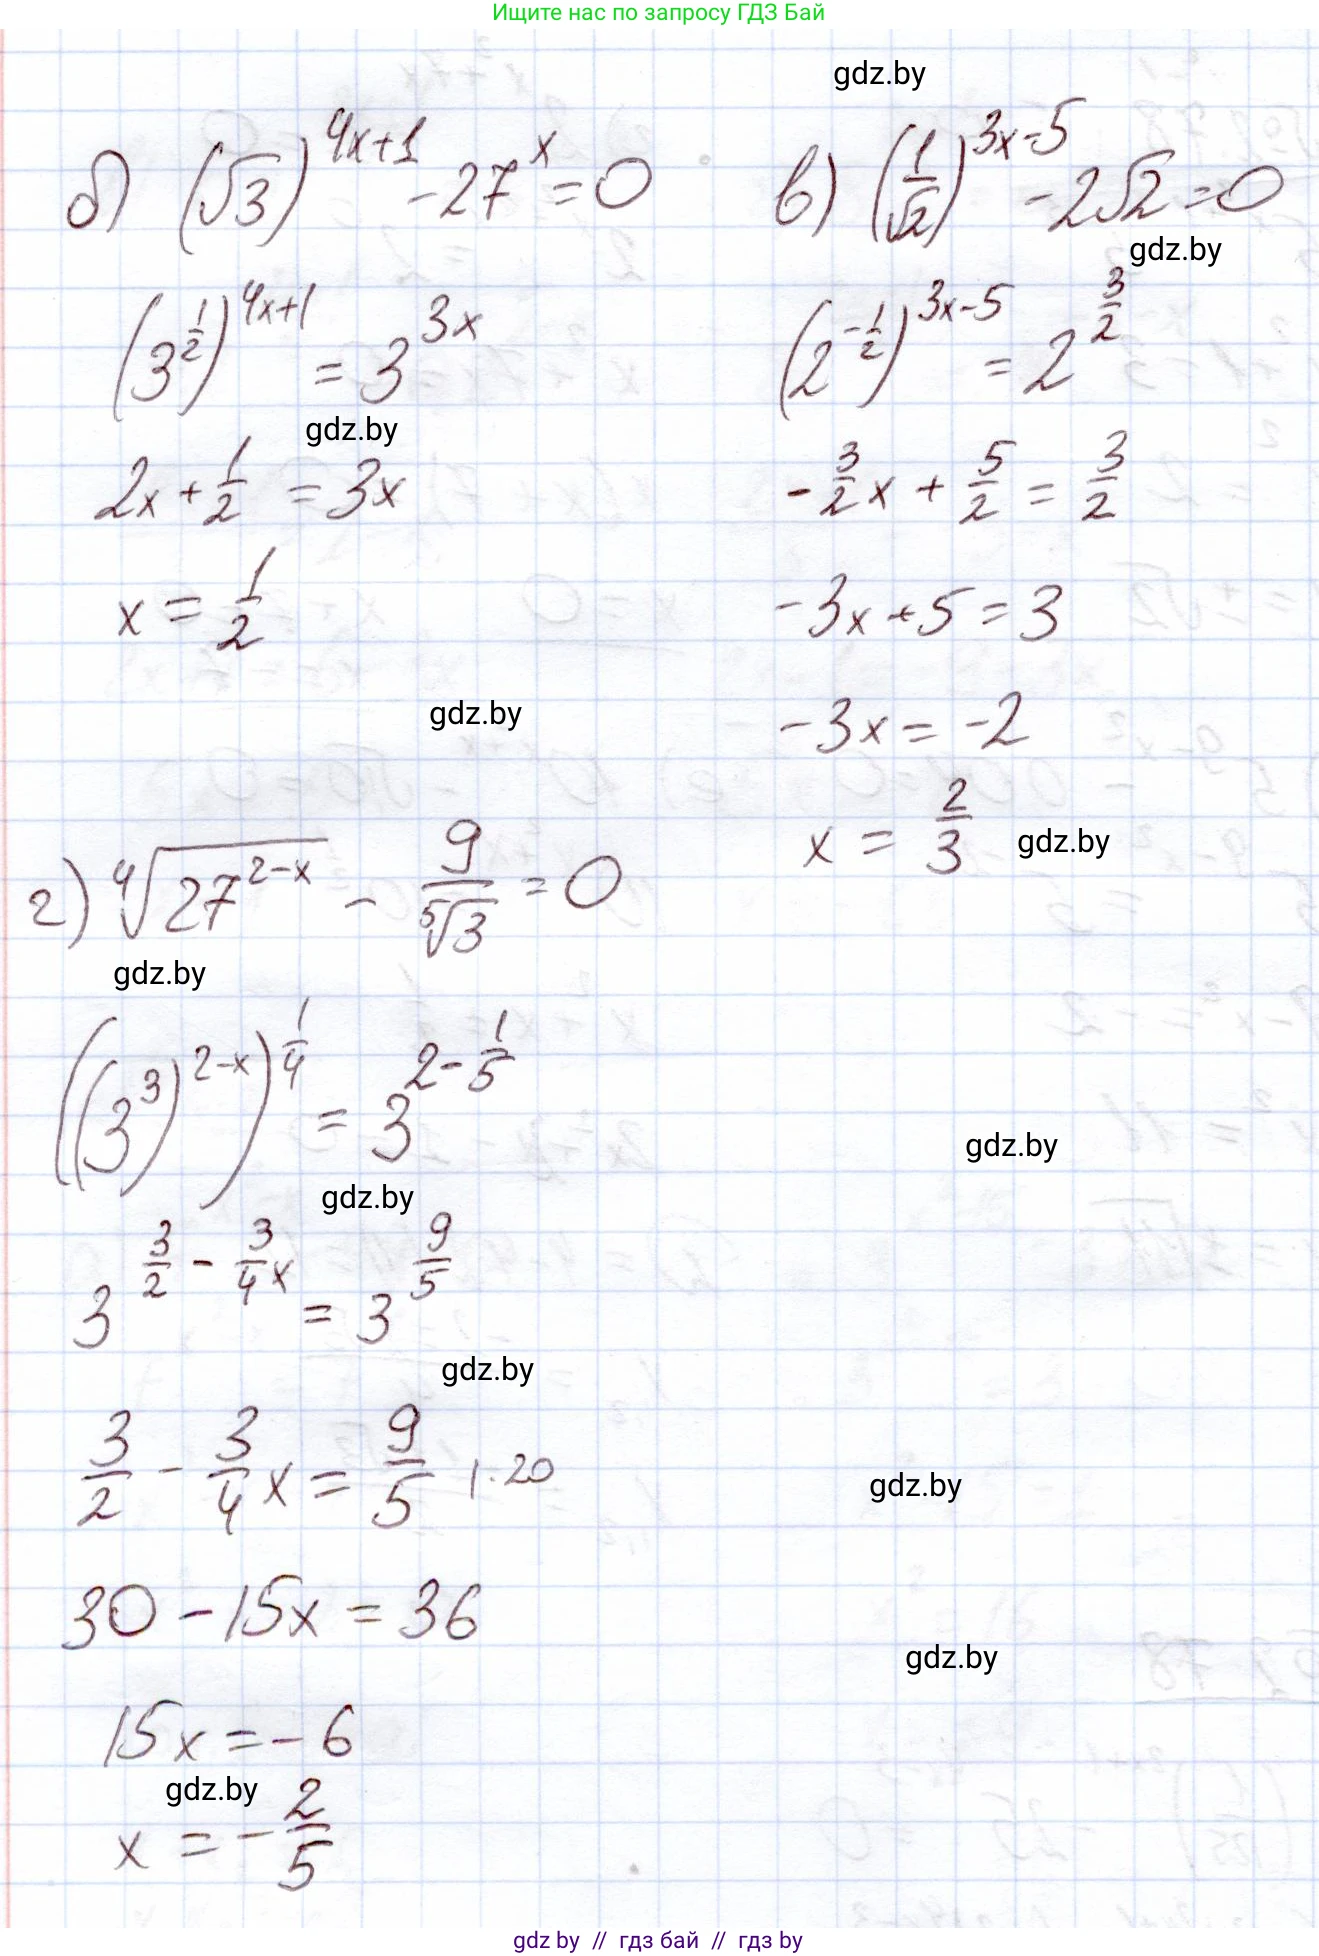 Ищите нас по запросу ГДЗ Бай
gdz.by
б) (√3)^(4x+1) - 27^x = 0
(3^(1/2))^(4x+1) = 3^(3x)
gdz.by
2x + 1/2 = 3x
x = 1/2
gdz.by
в) (1/√2)^(3x-5) - 2√2 = 0
gdz.by
(2^(-1/2))^(3x-5) = 2^(3/2)
-3/2 x + 5/2 = 3/2
-3x + 5 = 3
-3x = -2
x = 2/3
gdz.by
г) ⁴√(27^(2-x)) - 9/⁵√3 = 0
gdz.by
((3^3)^(2-x))^(1/4) = 3^(2-1/5)
gdz.by
gdz.by
3^(3/2 - 3/4 x) = 3^(9/5)
gdz.by
3/2 - 3/4 x = 9/5 |·20
gdz.by
30 - 15x = 36
gdz.by
15x = -6
gdz.by
x = -2/5
gdz.by // гдз бай // гдз by